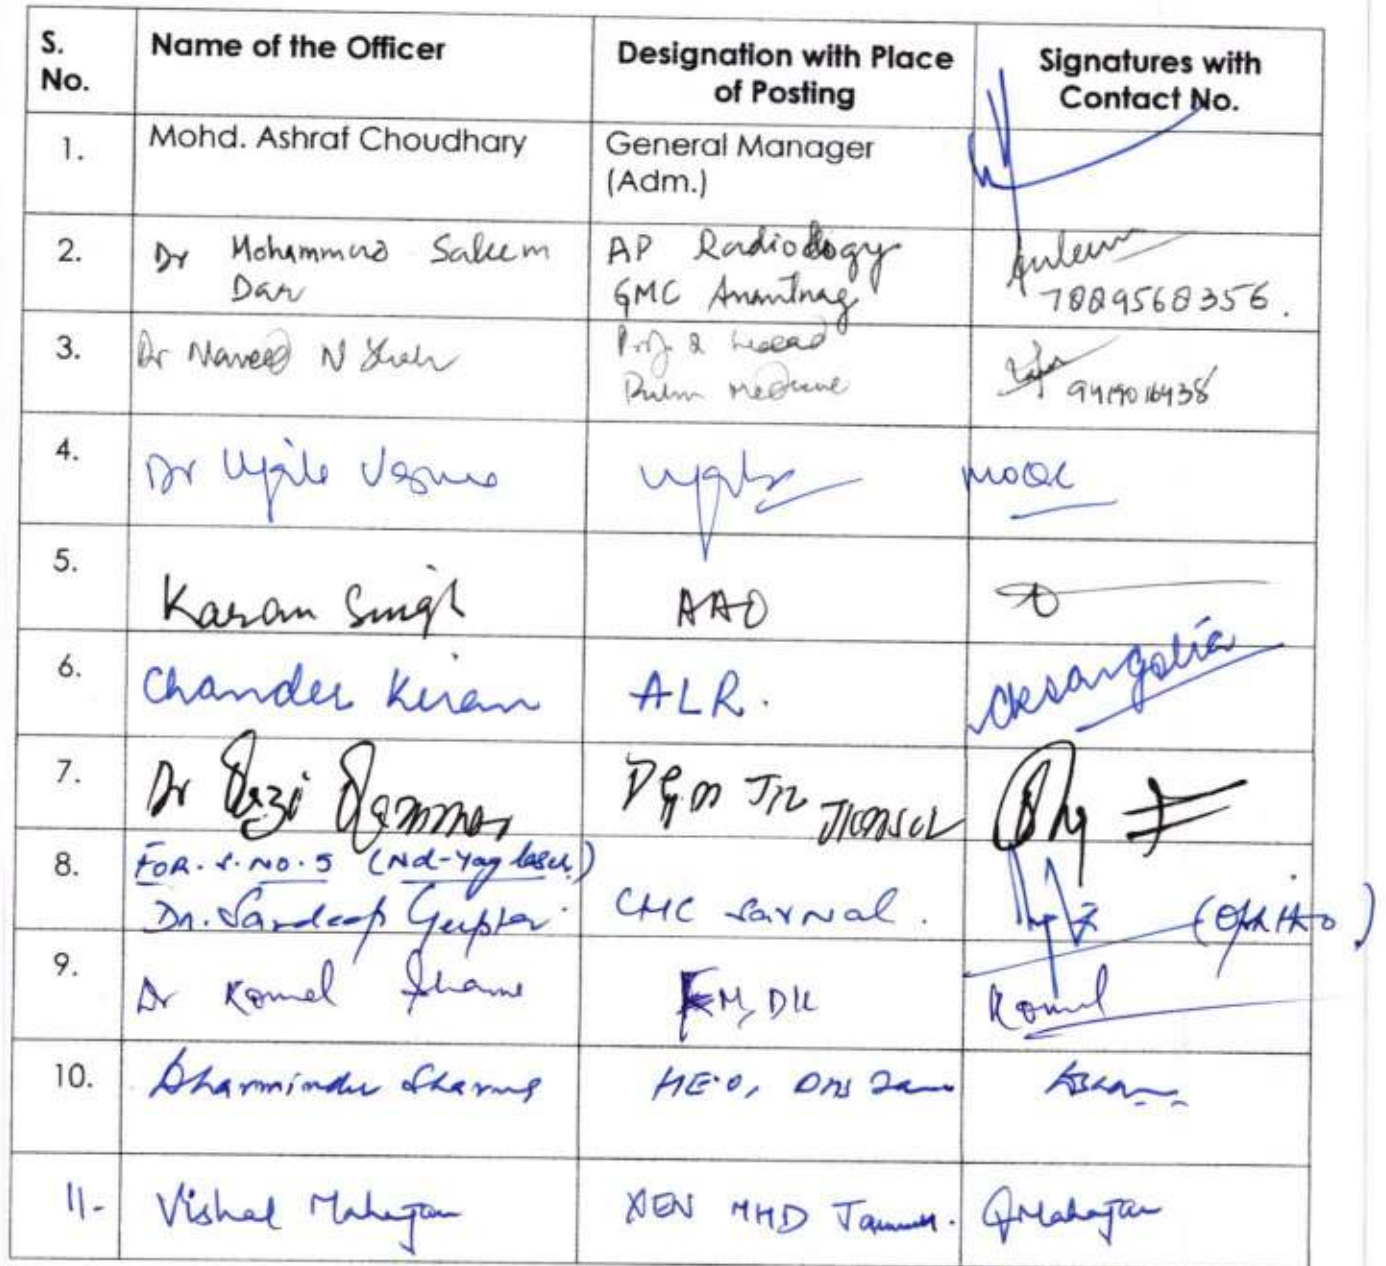 S. No.
Name of the Officer
Designation with Place of Posting
Signatures with Contact No.
1.
Mohd. Ashraf Choudhary
General Manager
(Adm.)
2.
Dr Mohammad Saleem
Dar
AP Radiology
GMC Anantnag
7889568356.
3.
Dr Naveed N Shah
Prof. & Head
Pulm Medicine
9419016438
4.
Dr
5.
Karan Singh
AAO
6.
Chander Kiran
ALR.
cksangotia
7.
Dr Qazi
8.
FOR. S. NO. 5 (Nd-Yag laser)
Dr. Sandeep Gupta
CHC Sarwal.
9.
Dr Komal
Komal
10.
Dharminder Sharma
HEO,
11-
Vishal Mahajan
XEN MHD Jammu.
VMahajan